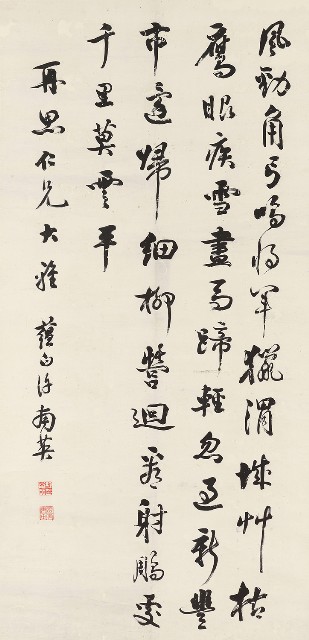 風勁角弓鳴將軍獵渭城艸枯
鷹眼疾雪盡馬蹄輕忽過新豐
市還歸細柳營迴看射鵰處
千里莫雲平
再思仁兄大雅 蘊白許南英